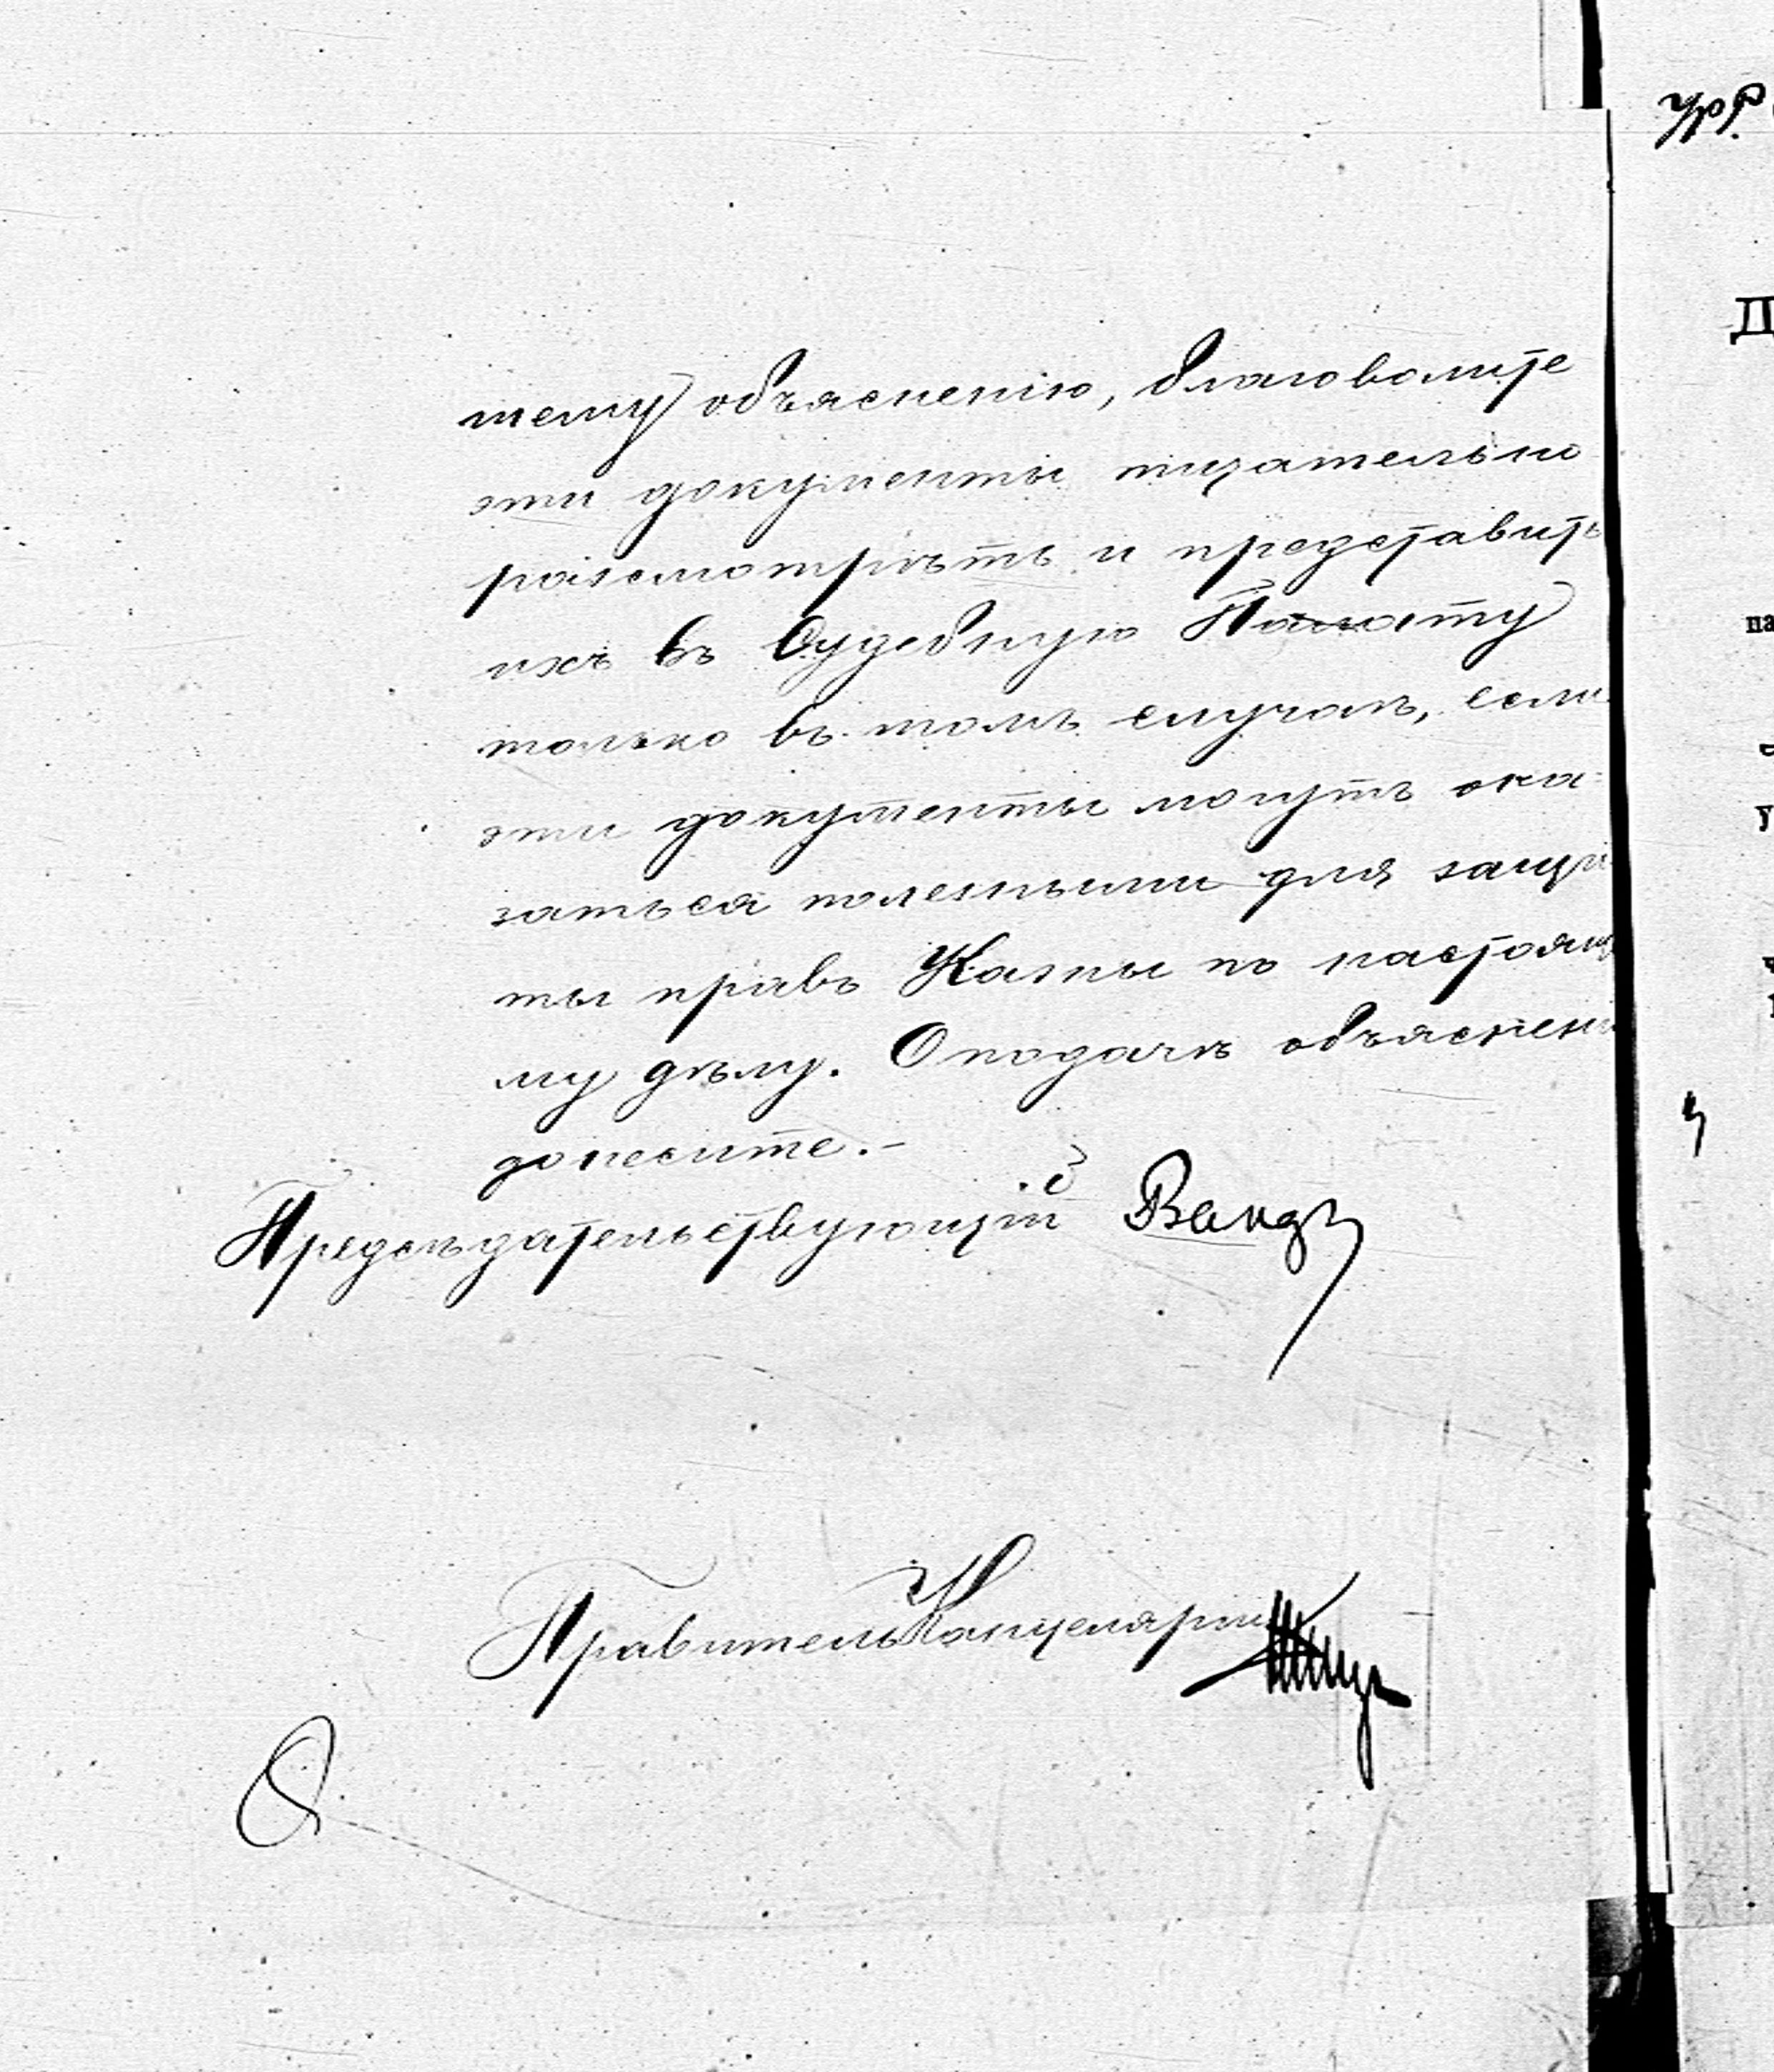 шему объясненію, благоволите
эти документы тщательно
разсмотрѣть и представить
ихъ въ Судебную Палату
только въ томъ случаѣ, если
эти документы могутъ ока-
заться полезными для защи
ты правъ Казны по настоящ
му дѣлу. О подачѣ объяснені
донесите.-
Предсѣдательствующій
Правитель Канцеляріи
Д
па